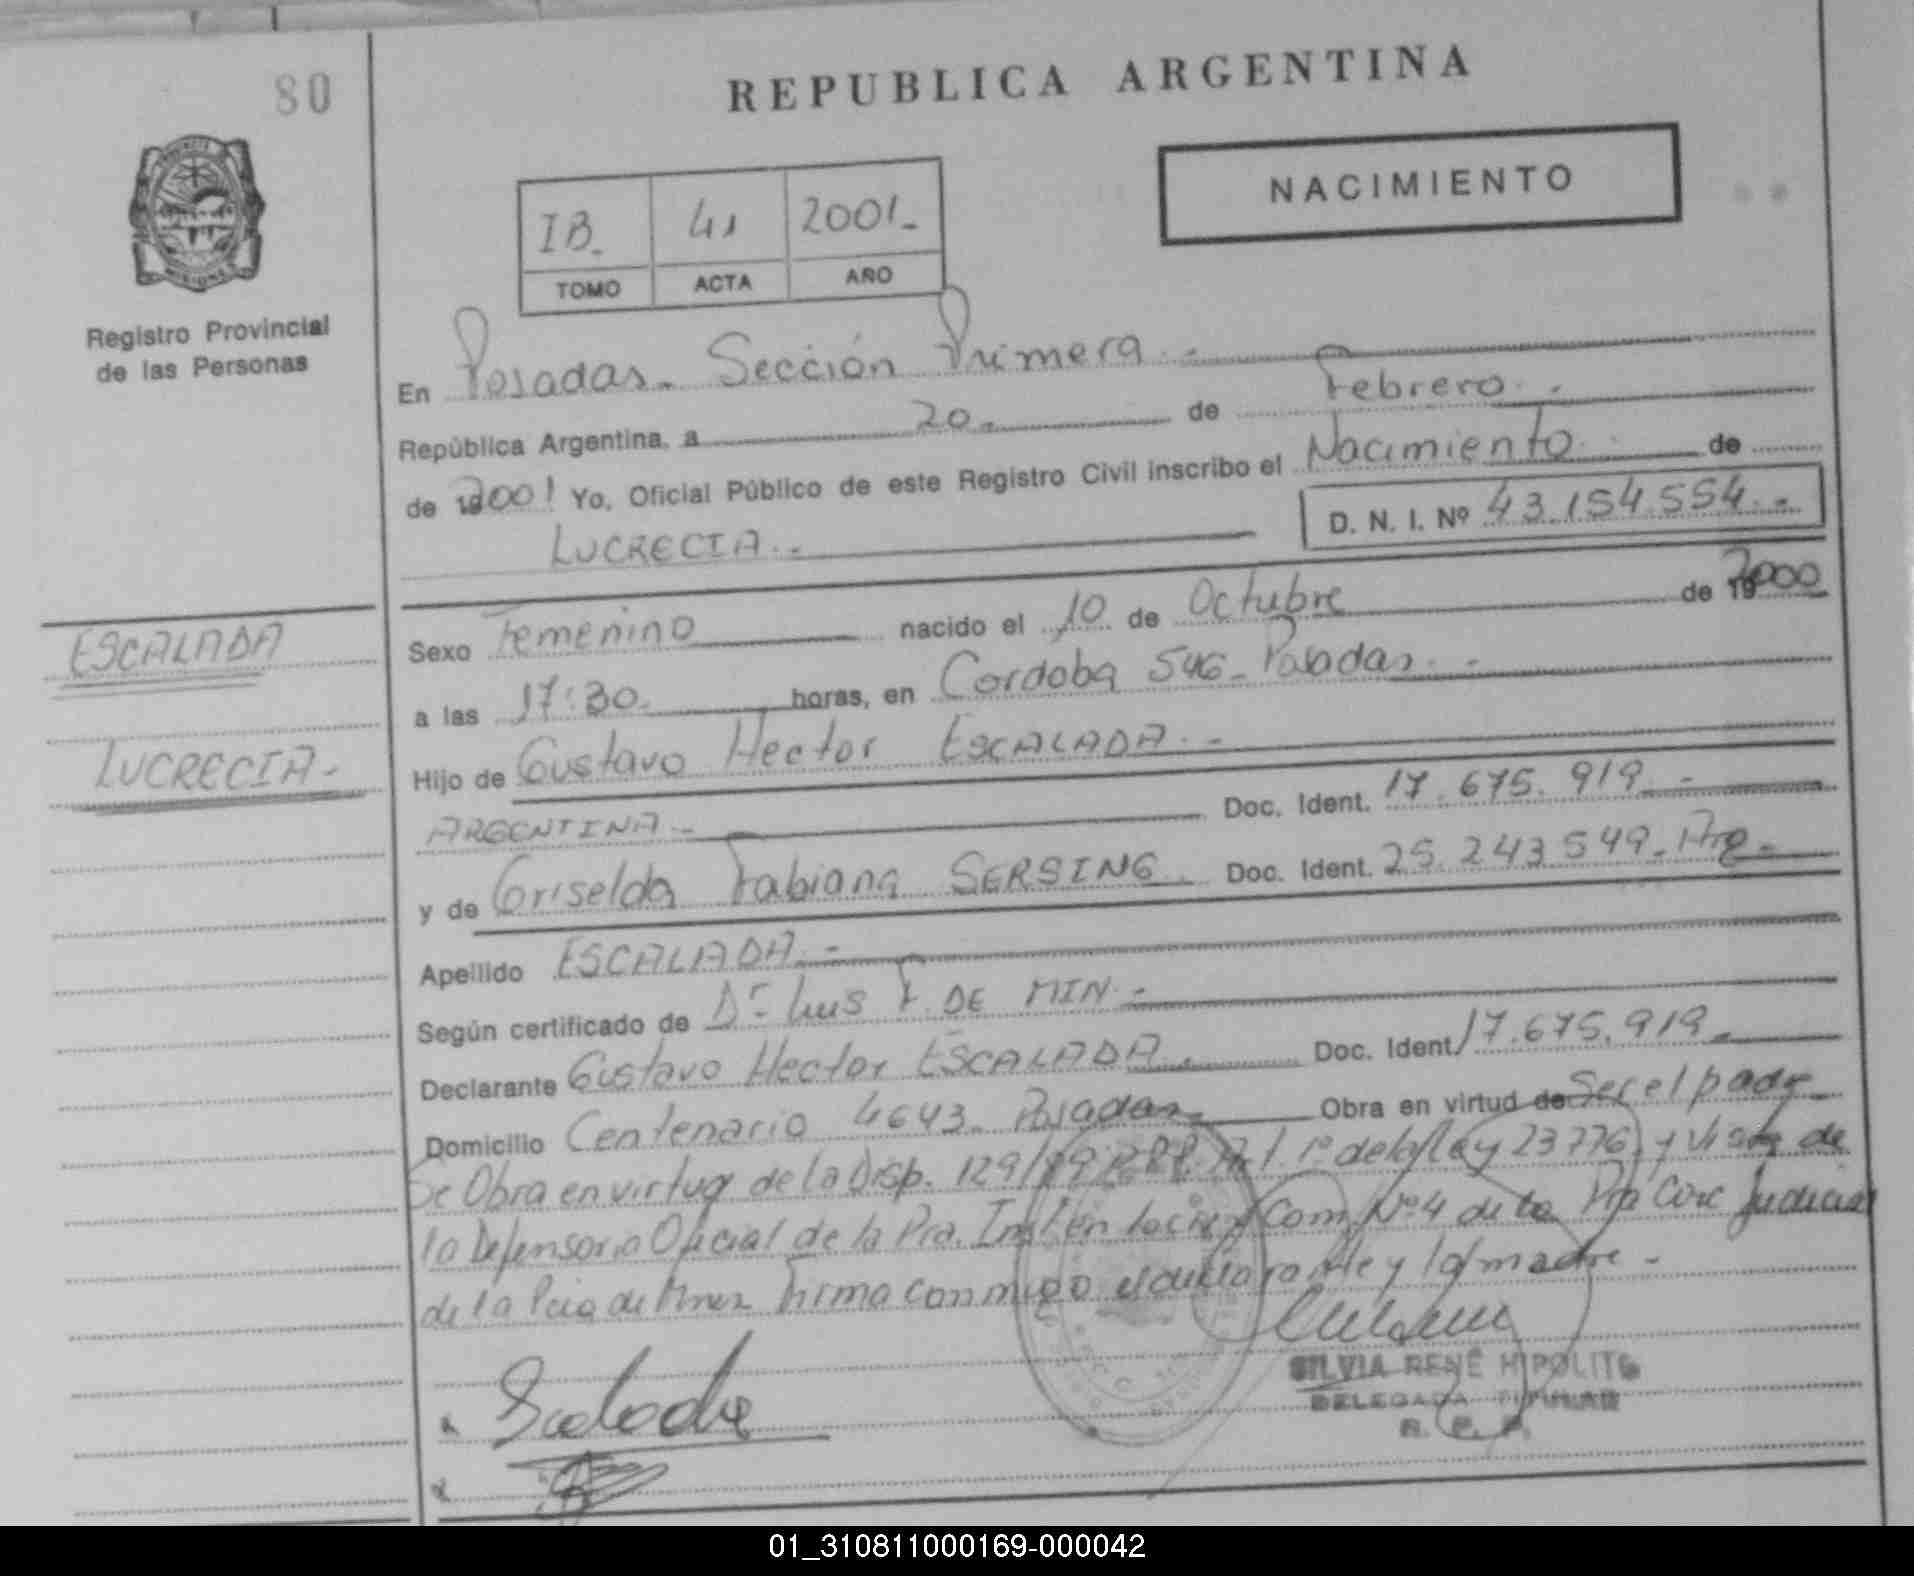 80
REPUBLICA ARGENTINA
NACIMIENTO
IB. 41 2001.
TOMO ACTA AÑO
Registro Provincial
de las Personas
En Posadas. Sección Primera
República Argentina, a 20. de Febrero
de 192001 Yo, Oficial Público de este Registro Civil inscribo el Nacimiento de
LUCRECIA D. N. I. Nº 43.154.554
ESCALADA
LUCRECIA
Sexo Femenino nacido el 10 de Octubre de 192000
a las 17:30 horas, en Cordoba 546 Posadas
Hijo de Gustavo Hector ESCALADA
ARGENTINA Doc. Ident. 17.675.919
y de Griselda Fabiana SERSING Doc. Ident. 25.243.549. Arg
Apellido ESCALADA
Según certificado de Dr Luis F. DE MIN
Declarante Gustavo Hector ESCALADA Doc. Ident. 17.675.919
Domicilio Centenario 4643 Posadas Obra en virtud de Ser el padre
Se Obra en virtud de la Disp. 129/ 1º de la ley 23776 y vista de
la Defensoria Oficial de la Pra. Inst en lo Com Nº4 de la Pra Circ Judicial
de la Pcia de Mnes Firma conmigo el declarante y la madre
SILVIA RENÉ HIPOLITO
DELEGADA TITULAR
R. P. P.
01_310811000169-000042